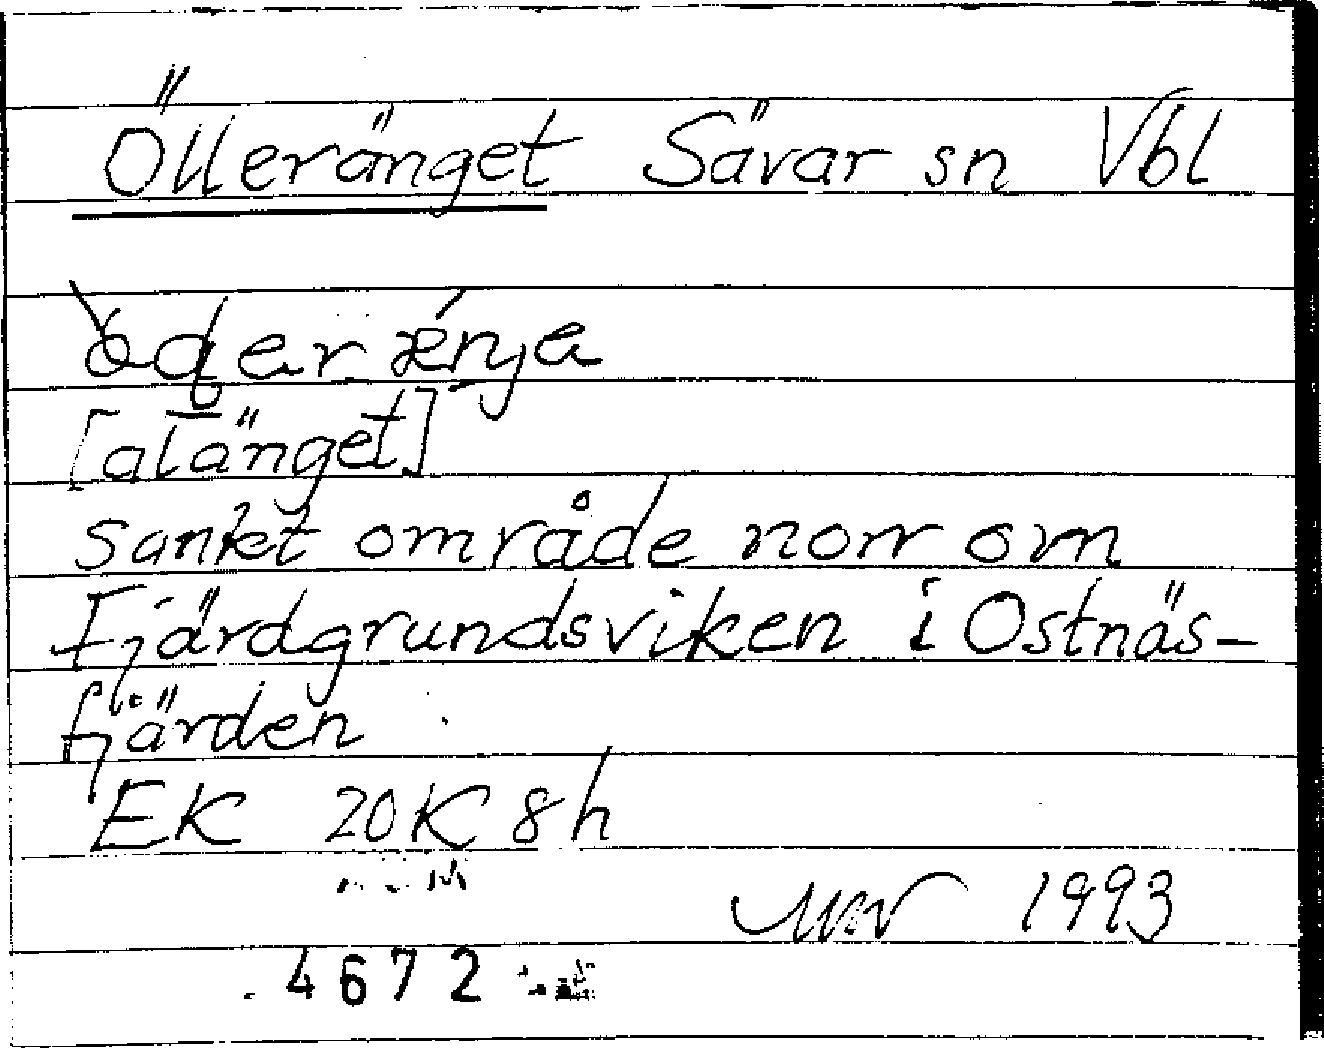 Ölleränget Sävar sn Vbl
[alänget]
sankt område norr om
Fjärdgrundsviken i Ostnäs-
fjärden
EK 20K 8h
1993
4672